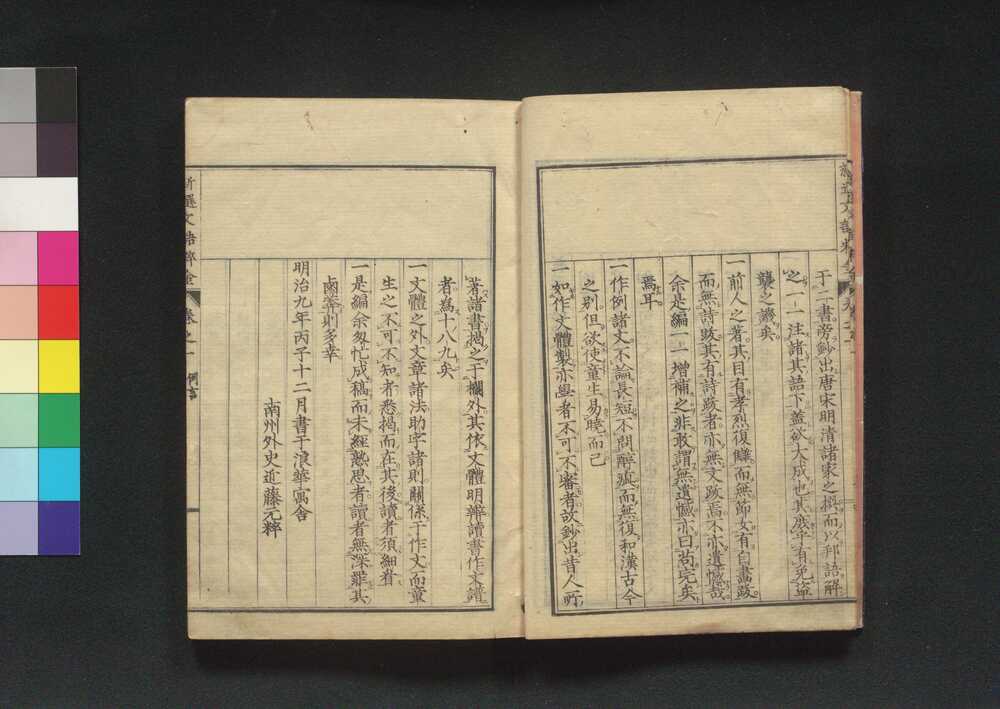 于二書旁鈔出唐宋明清諸家之撰而以邦語解
之一一注諸其語下蓋欲大成也其庶乎有免盜
襲之譏矣
一前人之著其目有孝烈復讎而無節女有自畫跋
而無詩跋其有詩跋者亦無文跋焉不亦遺憾哉
余是編一一增補之非敢謂無遺憾亦曰苟完矣
焉耳
一作例諸文不論長短不問醇疵而無復和漢古今
之別但欲使童生易曉而已
一如作文體製亦學者不可不審者故鈔出昔人所
著諸書揭之于欄外其依文體明辯讀書作文譜
者爲十八九矣
一文體之外文章諸法助字諸則關係于作文而童
生之不可不知者悉揭而在其後讀者須細看
一是編余怱忙成稿而未經熟思者讀者無深罪其
鹵莽則多幸
明治九年丙子十二月書于浪華寓舍
南州外史近藤元粹
新選文語粹金
卷之一
例言